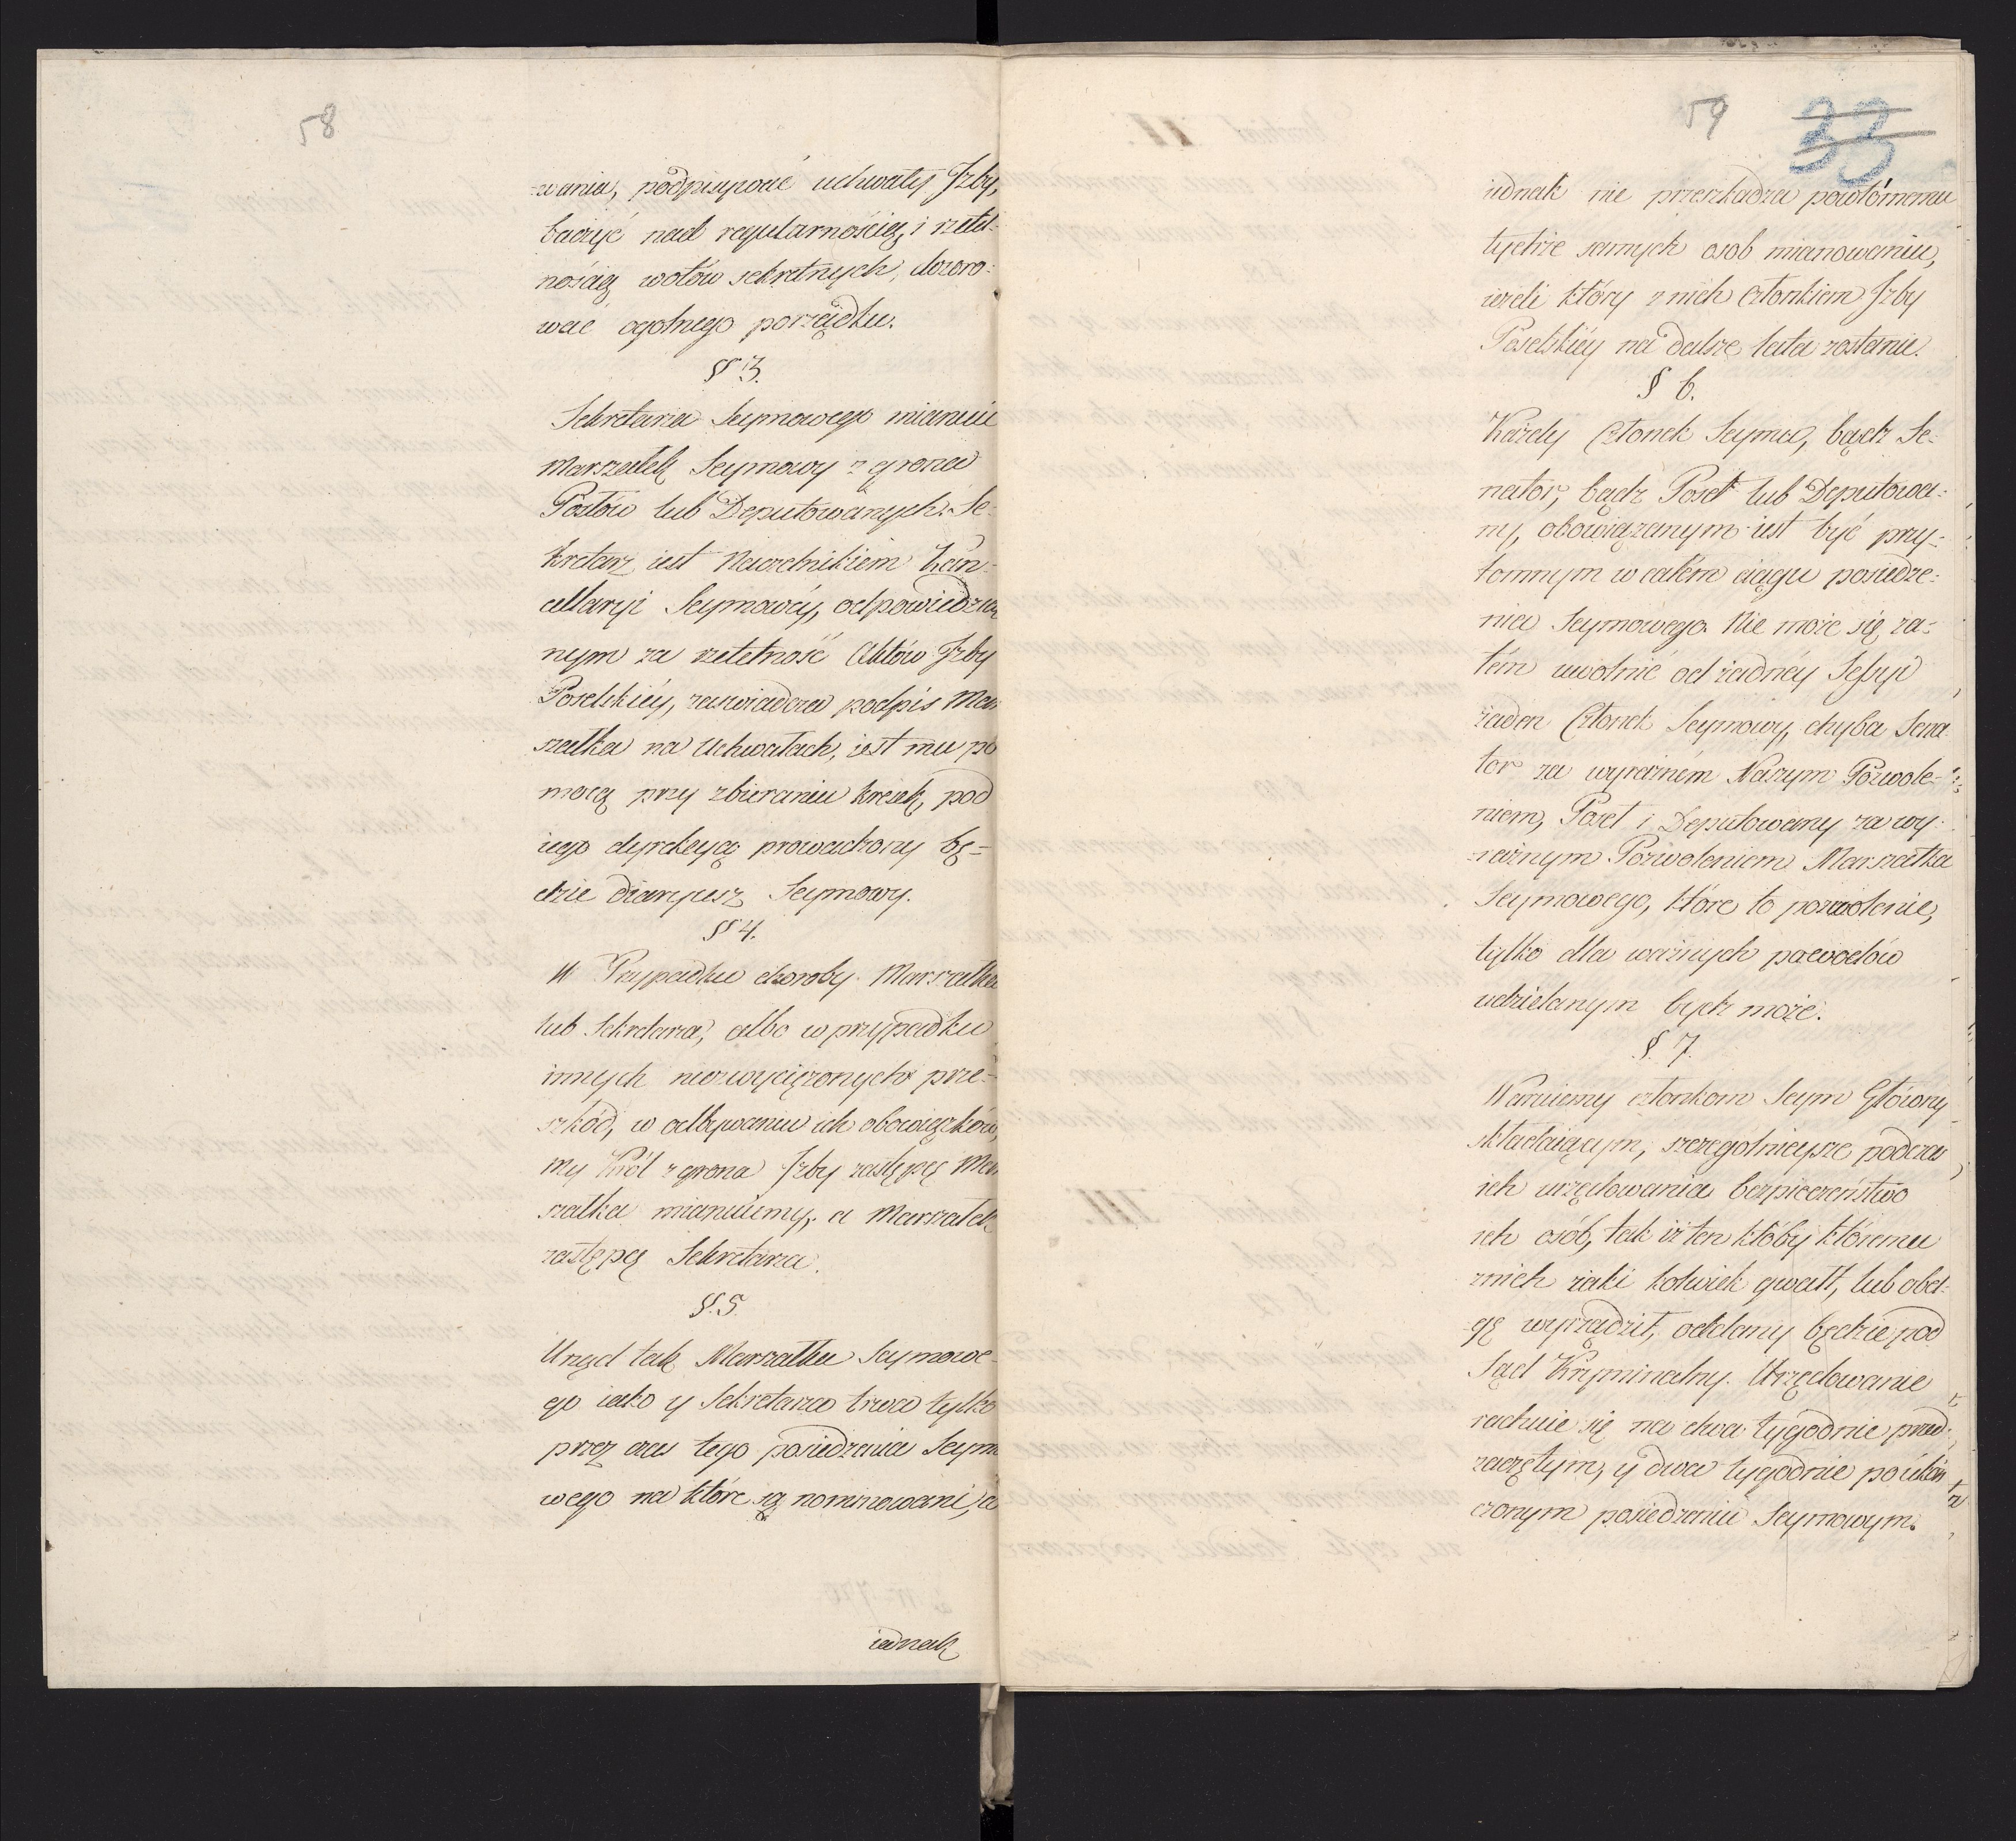 58
-wania, podpisywać uchwały Jzby,
baczyć nad regularnością, i rzetel-
nością wotów sekretnych, dozoro-
wać ogolnego porządku.
§ 3.
Sekretarza Seymowego mianuie
Marszałek Seymowy z grona
Posłów lub Deputowanych. Se-
kretarz iest Naczelnikiem Kan-
cellaryi Seymowéy, odpowiedzial
nym za rzetelność Aktów Jzby
Poselskiéy, zaswiadcza podpis Mar
szałka na Uchwałach, iest mu po
mocą przy zbieraniu kresek, pod
iego dyrekcyą prowadzony bę-
dzie Diaryusz Seymowy.
§ 4.
W Przypadku choroby Marszałka
lub Sekretarza, albo w przypadku
innych niezwyciężonych prze-
szkód, w odbywaniu ich obowiązków,
my Król z grona Jzby zastępcę Mar
szałka mianuiemy, a Marszałek
zastępcę Sekretarza.
§. 5.
Urząd tak Marszałka Seymowe-
go iako y Sekretarza trwa tylko
przez czas tego posiedzenia Seymo
wego na które są nominowani, co
iednak
59
33
iednak nie przeszkadza powtórnemu
tychże samych osob mianowaniu,
ieżeli który z nich Członkiem Jzby
Poselskiéy na dalsze lata zostanie.
§ 6.
Każdy Członek Seymu, bądz Se-
nator, bądz Poseł lub Deputowa-
ny, obowiązanym iest być przy-
tomnym w całém ciągu posiedze-
nia Seymowego. Nie może się za-
tém uwolnić od żadnéy Sessyi
żaden Członek Seymowy, chyba Sena
tor za wyraźném Naszym Pozwole-
niem, Poseł i Deputowany za wy-
-raźnym Pozwoleniem Marszałka
Seymowego, które to pozwolenie,
tylko dla ważnych powodów
udzielanym bydz może.
§. 7.
Waruiemy członkom Seym Główny
składaiącym, szczególnieysze podczas
ich urzędowania bezpieczeństwo
ich osób, tak iż ten któby któremu
z nich iaki kolwiek gwałt, lub obel-
gę wyrządził, oddany będzie pod
Sąd Kryminalny. Urzędowanie
rachuie się na dwa tygodnie przed
zaczętym, y dwa tygodnie po ukoń
czonym posiedzeniu Seymowym.